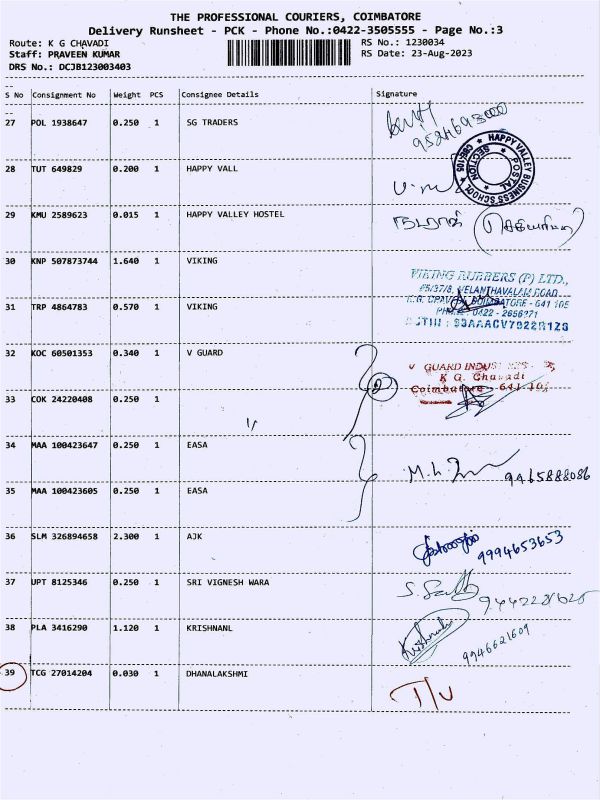 THE PROFESSIONAL COURIERS, COIMBATORE
Delivery Runsheet - PCK - Phone No.:0422-3505555 - Page No.:3
Route: K G CHAVADI RS No.: 1230034
Staff: PRAVEEN KUMAR RS Date: 23-Aug-2023
DRS No.: DCJB123003403
S No Consignment No Weight PCS Consignee Details Signature
27 POL 1938647 0.250 1 SG TRADERS
HAPPY VALLEY BUSINESS SCHOOL
POSTAL SECTION
CBE105
28 TUT 649829 0.200 1 HAPPY VALL
29 KMU 2589623 0.015 1 HAPPY VALLEY HOSTEL
30 KNP 507873744 1.640 1 VIKING
VIKING RUBBERS (P) LTD.,
VELANTHAVALAM ROAD
COIMBATORE - 641 105
0422 - 2656371
31 TRP 4864783 0.570 1 VIKING
32 KOC 60501353 0.340 1 V GUARD
V GUARD
K G. Chavadi
Coimbatore - 641 105
33 COK 24220408 0.250 1
"
34 MAA 100423647 0.250 1 EASA
9465888086
35 MAA 100423605 0.250 1 EASA
36 SLM 326894658 2.300 1 AJK
9994653653
37 UPT 8125346 0.250 1 SRI VIGNESH WARA
38 PLA 3416290 1.120 1 KRISHNANL
9946621609
39 TCG 27014204 0.030 1 DHANALAKSHMI